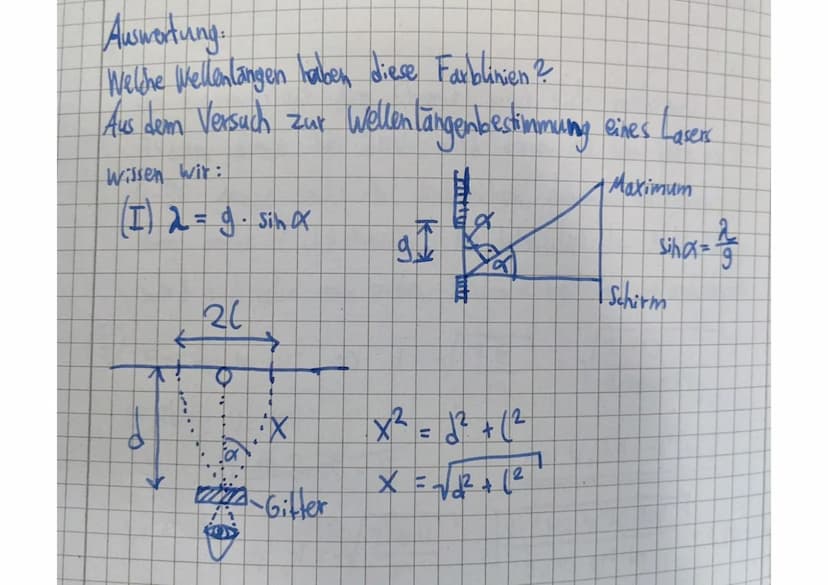 Auswertung:
Welche Wellenlängen haben diese Farblinien?
Aus dem Versuch zur Wellenlängenbestimmung eines Lasers
wissen wir:
(I) λ = g · sin α
g
α
α
Maximum
Schirm
sin α = λ/g
2l
d
α
x
Gitter
x² = d² + l²
x = √(d² + l²)